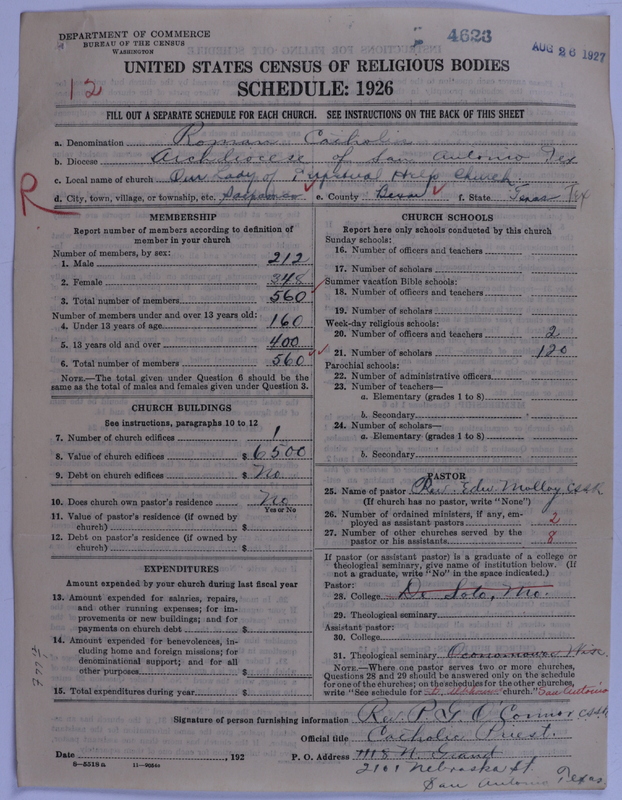 DEPARTMENT OF COMMERCE
BUREAU OF THE CENSUS
WASHINGTON
4623
AUG 26 1927
UNITED STATES CENSUS OF RELIGIOUS BODIES
12
SCHEDULE: 1926
FILL OUT A SEPARATE SCHEDULE FOR EACH CHURCH. SEE INSTRUCTIONS ON THE BACK OF THIS SHEET
a. Denomination Roman Catholic
b. Diocese Archdiocese of San Antonio Tex
c. Local name of church Our Lady of Perpetual Help Church.
R
d. City, town, village, or township, etc. e. County Bexar f. State Texas Tex
MEMBERSHIP
Report number of members according to definition of member in your church
Number of members, by sex:
1. Male 212
2. Female 348
3. Total number of members 560
Number of members under and over 13 years old:
4. Under 13 years of age 160
5. 13 years old and over 400
6. Total number of members 560
NOTE.—The total given under Question 6 should be the same as the total of males and females given under Question 3.
CHURCH BUILDINGS
See instructions, paragraphs 10 to 12
7. Number of church edifices 1
8. Value of church edifices $ 6500
9. Debt on church edifices $ No
10. Does church own pastor's residence No
Yes or No
11. Value of pastor's residence (if owned by church) $
12. Debt on pastor's residence (if owned by church) $
EXPENDITURES
Amount expended by your church during last fiscal year
13. Amount expended for salaries, repairs, and other running expenses; for improvements or new buildings; and for payments on church debt $
14. Amount expended for benevolences, including home and foreign missions; for denominational support; and for all other purposes $
15. Total expenditures during year $
CHURCH SCHOOLS
Report here only schools conducted by this church
Sunday schools:
16. Number of officers and teachers
17. Number of scholars
Summer vacation Bible schools:
18. Number of officers and teachers
19. Number of scholars
Week-day religious schools:
20. Number of officers and teachers 2
21. Number of scholars 120
Parochial schools:
22. Number of administrative officers
23. Number of teachers—
a. Elementary (grades 1 to 8)
b. Secondary
24. Number of scholars—
a. Elementary (grades 1 to 8)
b. Secondary
PASTOR
25. Name of pastor Rev. Edw. Molloy CSSR
(If church has no pastor, write "None")
26. Number of ordained ministers, if any, employed as assistant pastors 2
27. Number of other churches served by the pastor or his assistants 8
If pastor (or assistant pastor) is a graduate of a college or theological seminary, give name of institution below. (If not a graduate, write "No" in the space indicated.)
Pastor:
28. College De Soto, Mo.
29. Theological seminary
Assistant pastor:
30. College
31. Theological seminary Oconomowoc Wisc
NOTE.—Where one pastor serves two or more churches, Questions 28 and 29 should be answered only on the schedule for one of the churches; on the schedules for the other churches, write "See schedule for church." San Antonio
Signature of person furnishing information Rev. P. G. O'Connor CSSR
Official title Catholic Priest.
Date , 192 P. O. Address 1118 N. Grand
2101 Nebraska St.
San Antonio Texas.
8—5518a 11—9056